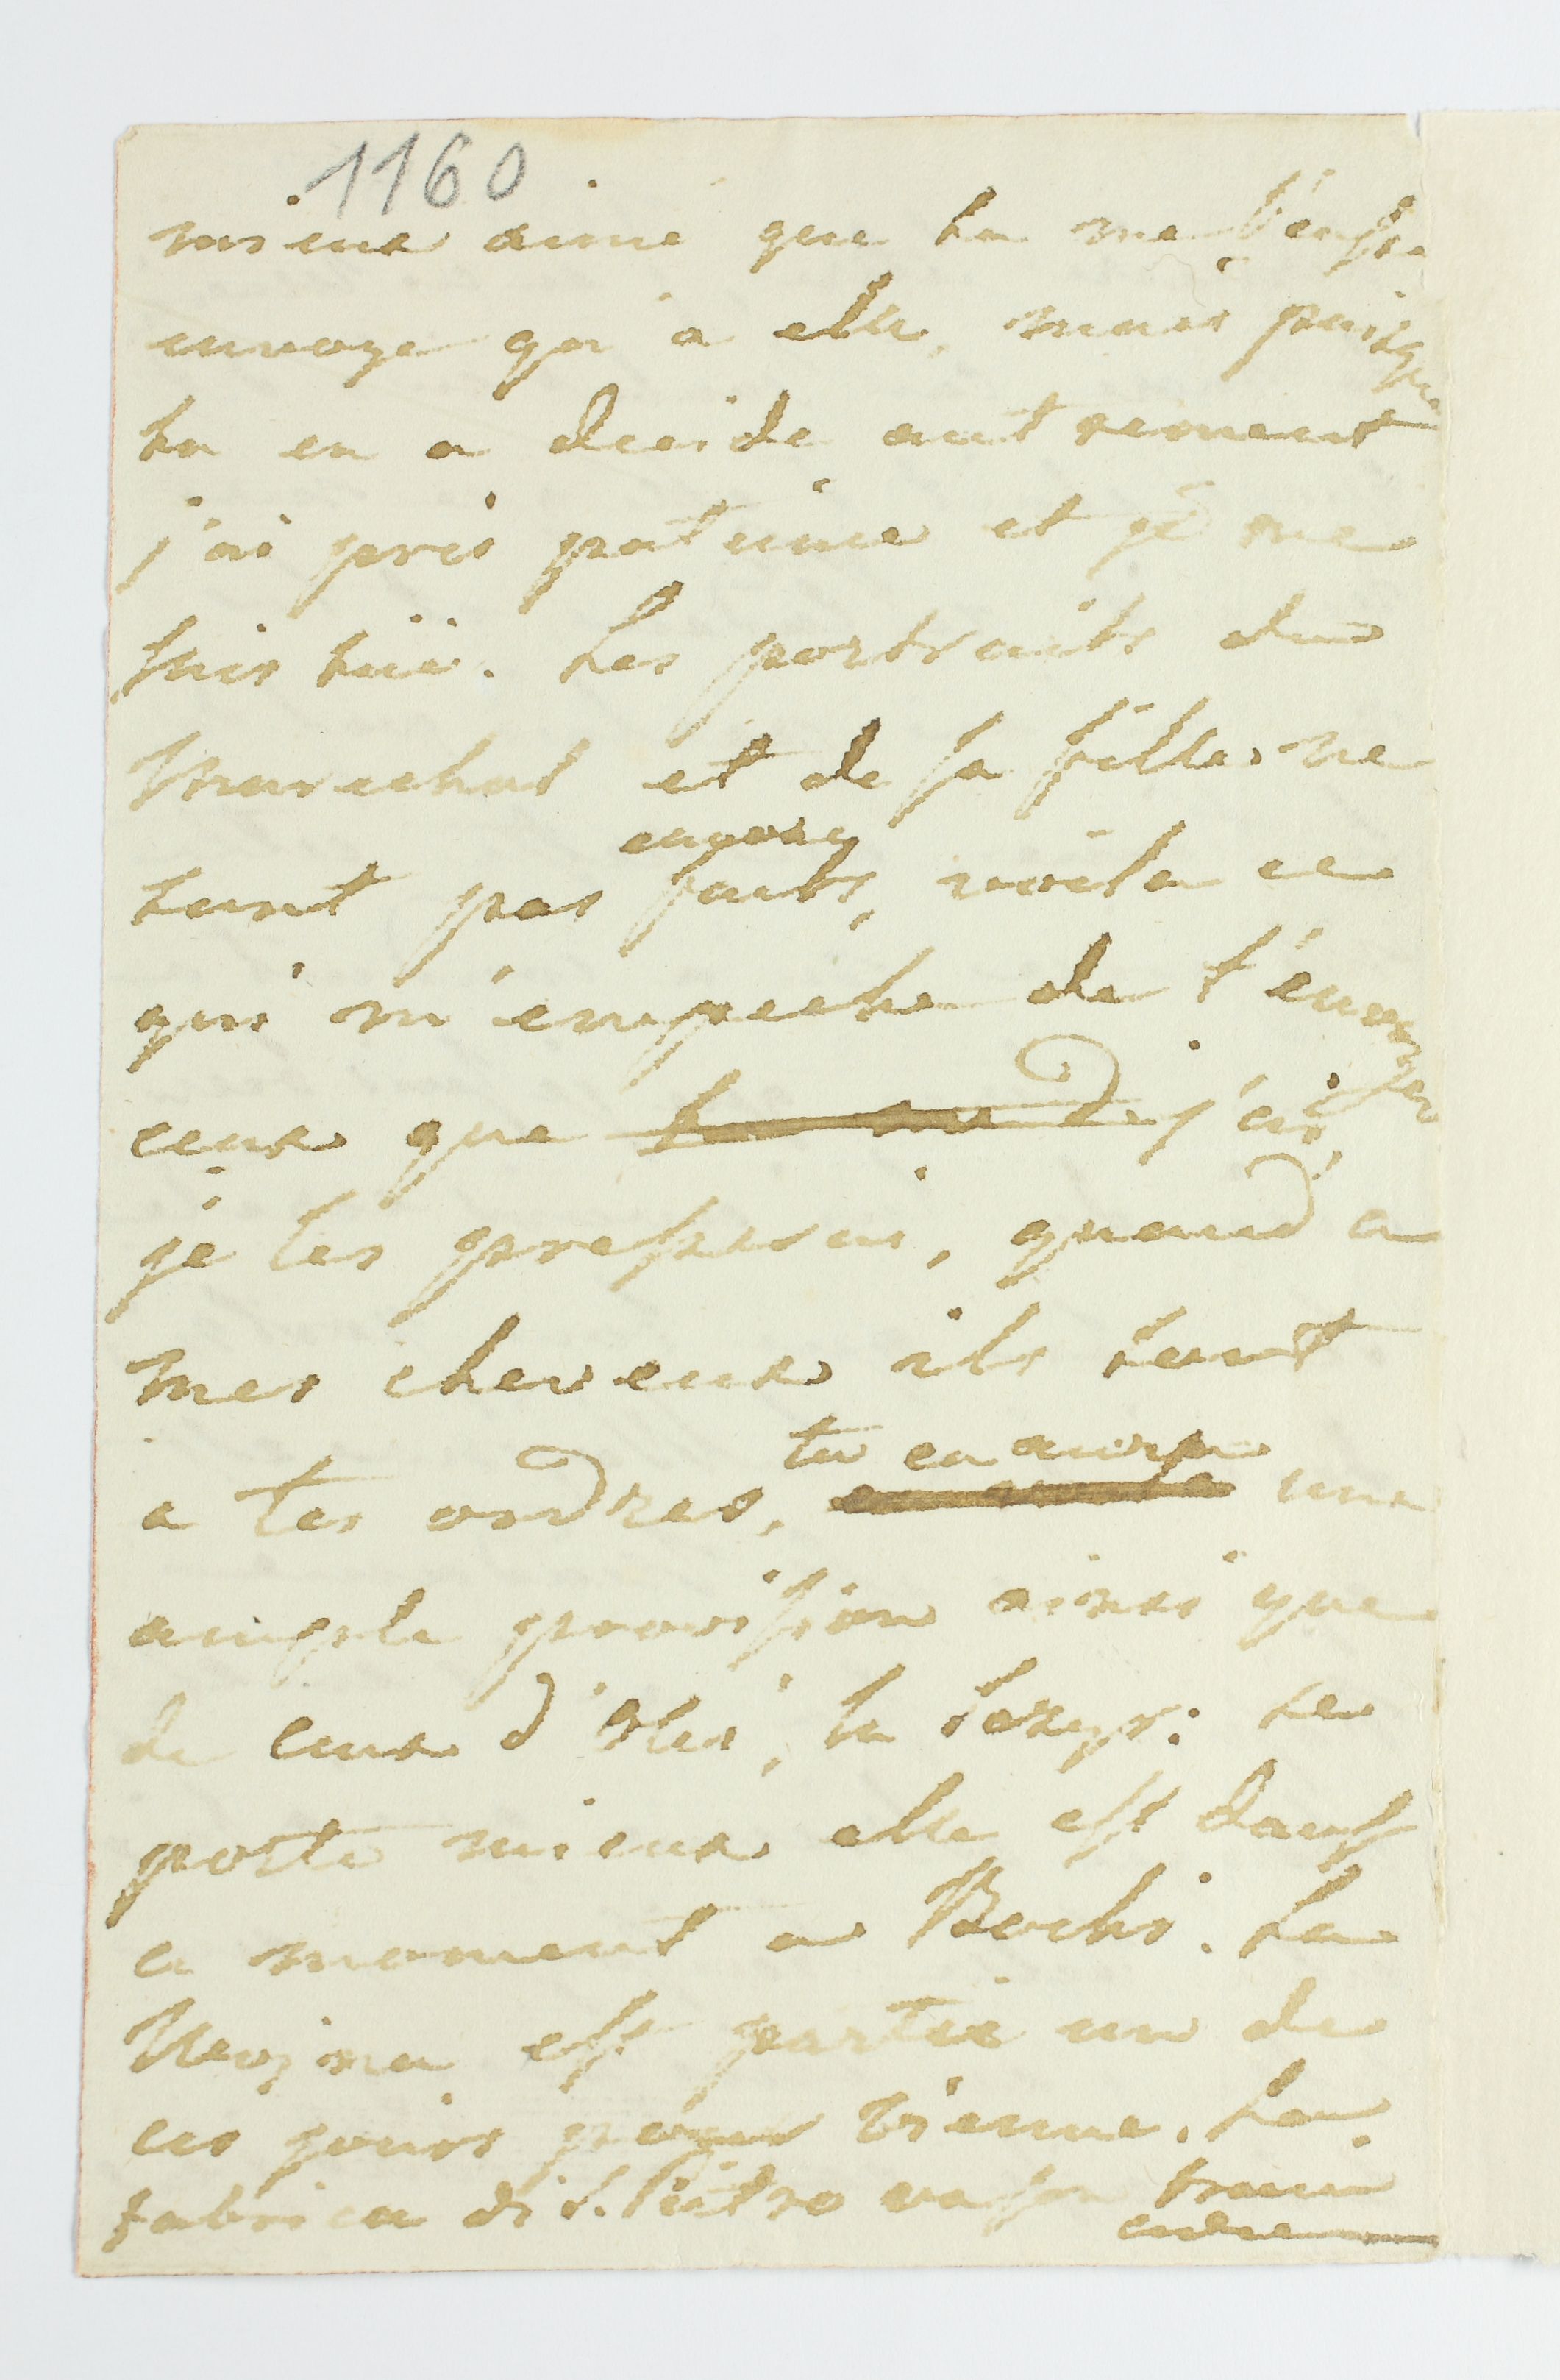 1160
mieux aimé que tu me l'eusse
envoye qu'a elle, mais puisque
tu en a decide autrement
j'ai pris patience et je me
suis tüe. Les portraits du
Marechal et de sa fille ne
sont pas faits, voila ce
encore
qui m'empeche de t'envoyer
ceux que j'ai,
je les professerai, quand a
mes cheveux ils sont
a tes ordres, tu en aura une
ample provision ainsi que
de ceux d'
porte mieux elle est dans
ce moment a Rocks. La
est partie un de
ces jours pour Vienne. La
fabrica di S. Pietro va son train